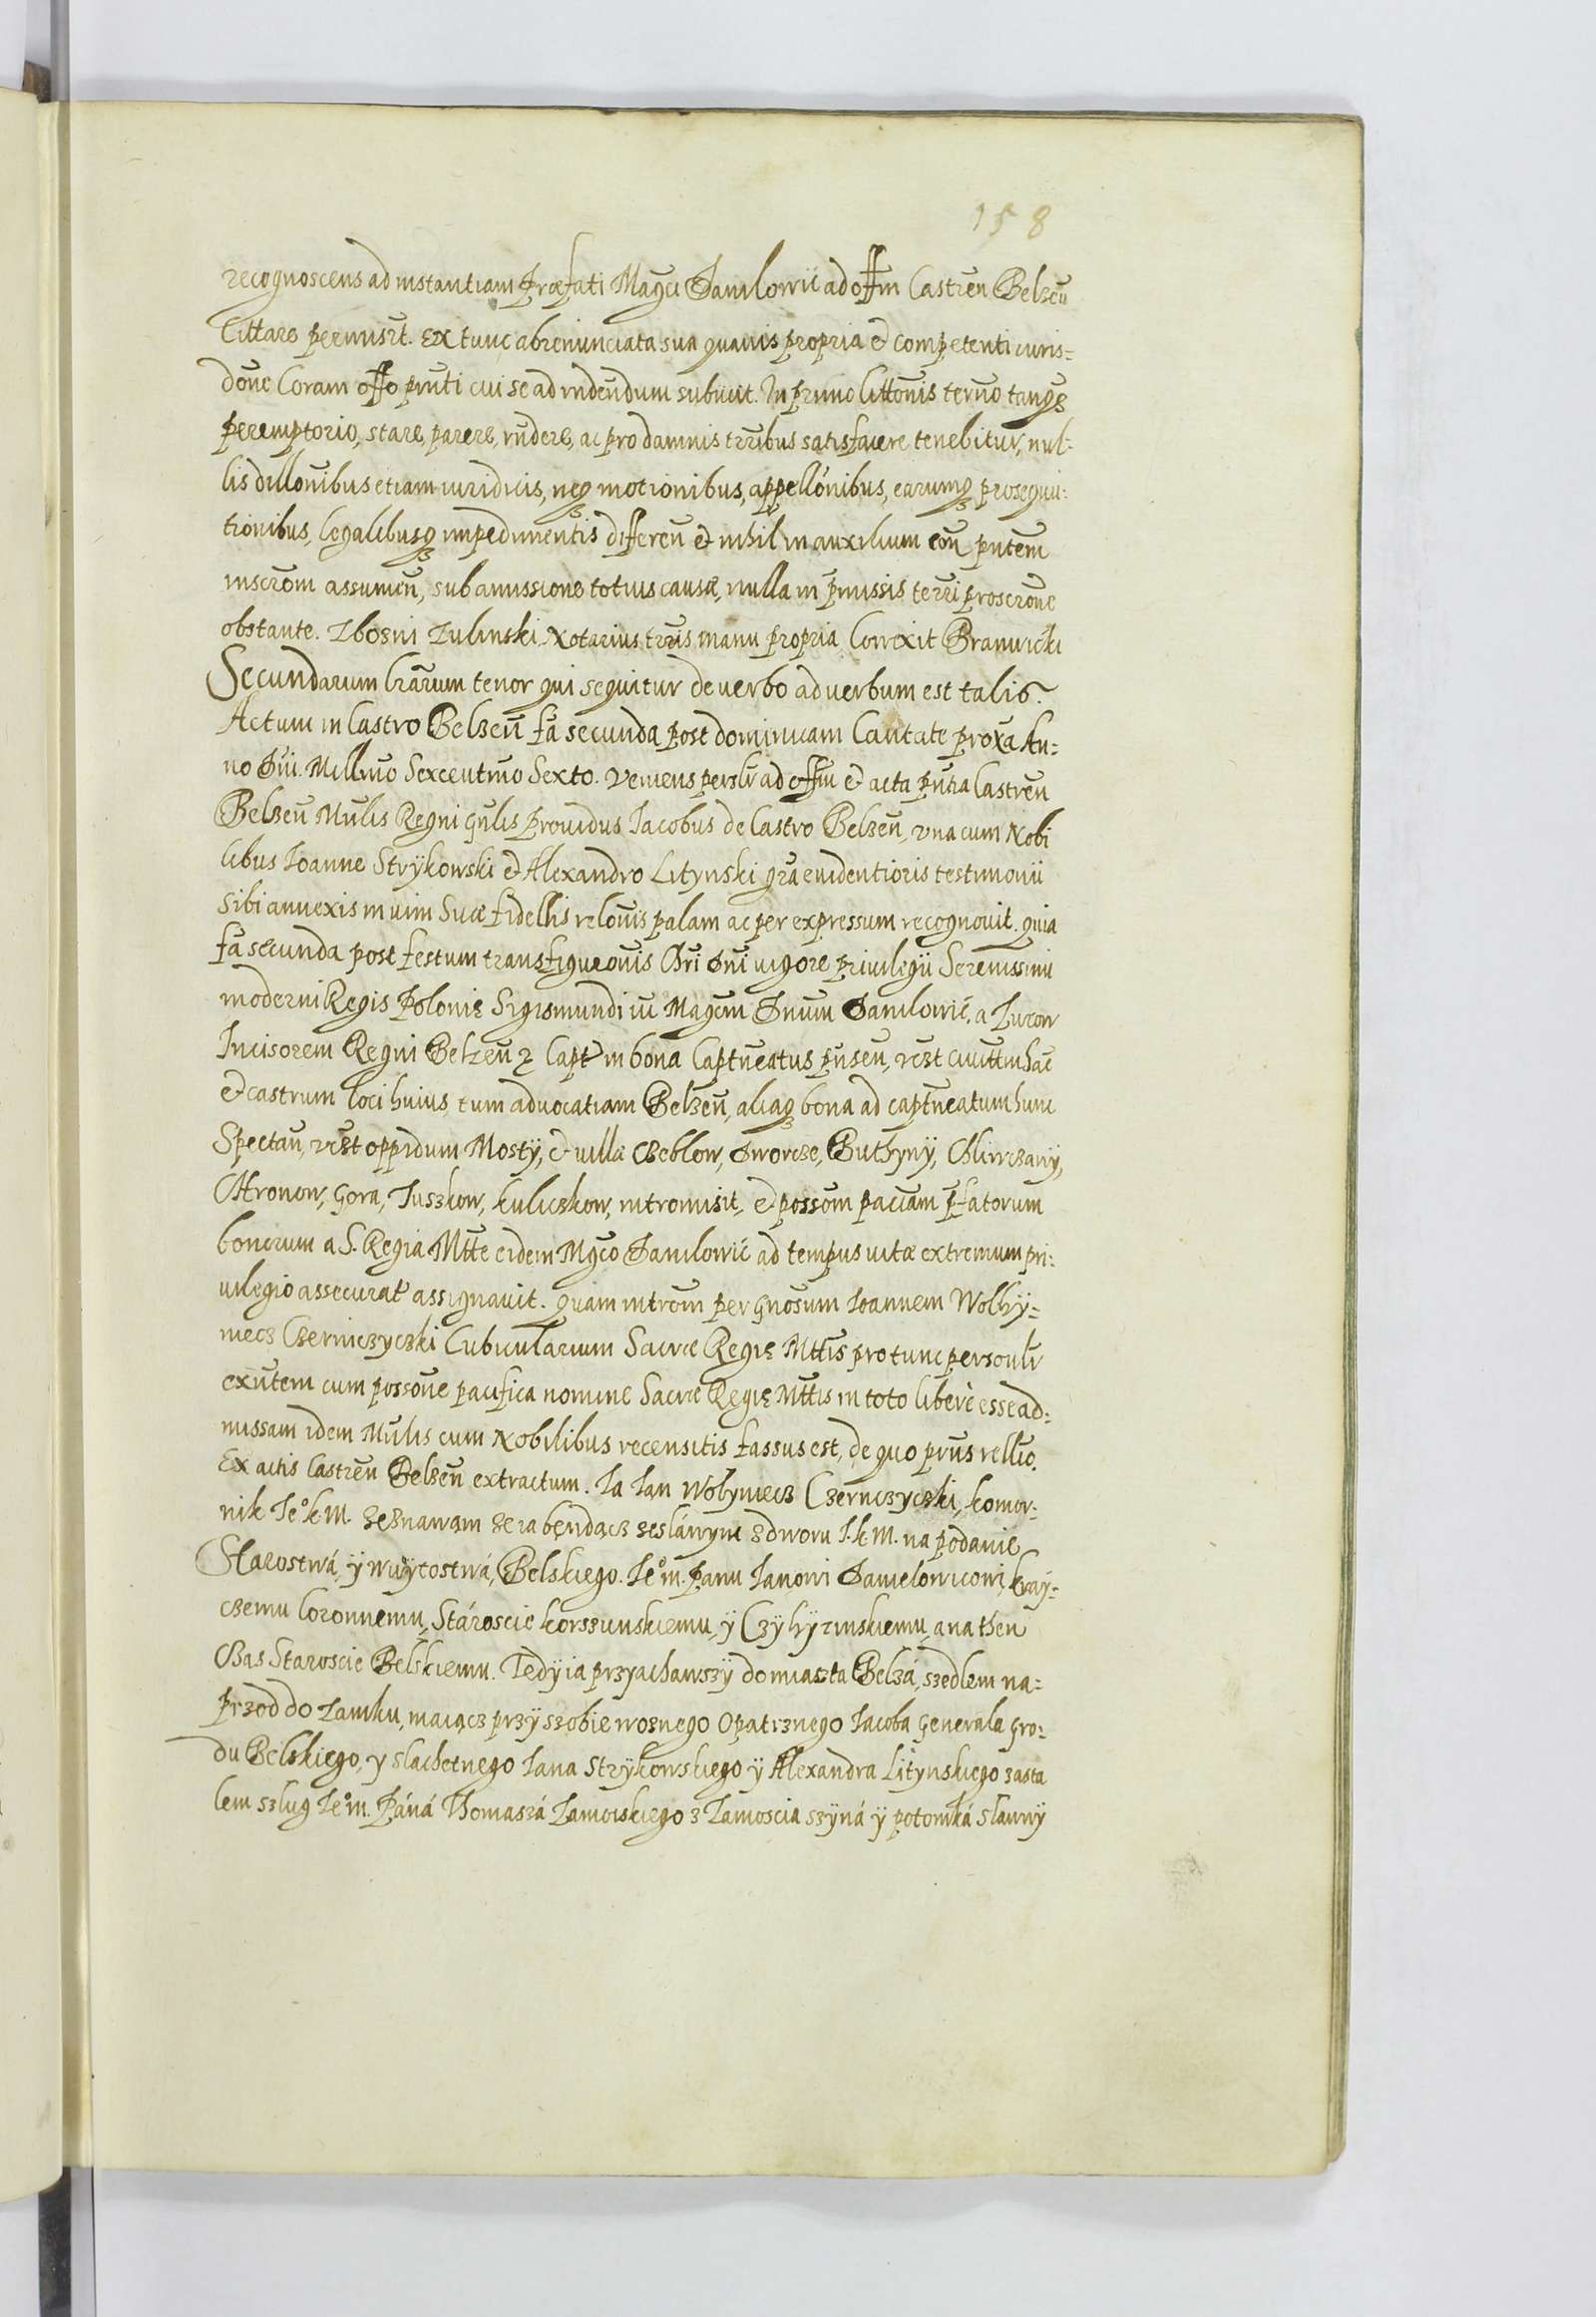 158
recognoscens ad instantiam præfati Magci Danilowii ad offm Castren Belzen
Cittare permisit. Ex tunc abrenunciata sua quavis propria et competenti iuris=
done Coram offo pnti cui se ad rndendum subiicit. In primo Cittonis termo tanqz
peremptorio, stare, parere, rndere, ac pro damnis trribus satisfacere tenebitur, nul=
lis dillonibus etiam iuridicis, neqz motionibus, appellonibus, earumqz prosequu=
tionibus, legalibusqz impedimentis differen et nihil in auxilium con pntem
inscrom assumen, sub amissione totius causæ, nulla in pmissis terri proscrone
obstante. Zbozni Zulinski Notarius trris manu propria Correxit Branwicki
Secundarum lrarum tenor qui sequitur de verbo ad verbum est talis.
Actum in Castro Belzen fa secunda post dominicam Cantate proxa An=
no Dni. Millmo Sexcentmo Sexto. Veniens persolr ad offm et acta pntia Castren
Belzen Mnlis Regni Gnlis providus Iacobus de Castro Belzen, una cum Nobi
libus Ioanne Strÿkowski et Alexandro Litynski gra evidentioris testimonii
sibi annexis in vim suæ fidellis relonis palam ac per expressum recognovit. quia
fa secunda post festum transfigueonis Chri Dni vigore privilegii Serenissimi
moderni Regis Polonię Sigismundi iii Magcm Dnum Danilowic, a Zurow
Incisorem Regni Belzen z Capt in bona Captneatus pnsen, vest civittm hac
et castrum loci huius, tum advocatiam Belzen, aliaqz bona ad captneatum hunc
Spectan, vest oppidum Mostÿ, et villa Czeblow, Dworcze, Buthynÿ, Chlivczanÿ,
Chronow, Gora, Tuszkow, Kuliczkow, intromisit, et possom paciam pfatorum
bonorum a S. Regia Mtte eidem Mgco Danilowic ad tempus vitæ extremum pri=
vilegio assecurat assignavit. Quam intrem per Gnosum Ioannem Wolhÿ=
niecz Czerniczyczki Cubicularium Sacræ Regię Mttis pro tunc personlr
exntem cum possone pacifica nomine Sacræ Regię Mttis in toto liberè esse ad=
missam idem Mnlis cum Nobilibus recensitis fassus est, de quo prns rellio.
Ex actis Castren Belzen extractum. Ia Ian Wolyniecz Czernczyczki, komor=
nik Ieo k M. zeznawam ze ia bendącz zeslánym z dworu I. k M. na podanie
Starostwá, ÿ wuÿtostwá, Belskiego. Ieo m. Panu Ianowi Danielowiconi, kraÿ=
czemu Coronnemu, Stároscie korszunskiemu, ÿ Czÿhÿrinskiemu, a na then
Czas Staroscie Belskiemu. Tedÿ ia przyachawszÿ do miazta Belzá, szedlem na=
przod do Zamku, maiącz przÿ szobie woznego Opatrznego Iacoba Generala Gro=
du Belskiego, y slachetnego Iana Strykowskiego ÿ Alexandra Litynskiego zasta
lem szlug Ieo m. Páná Thomaszá Zamoiskiego z Zamoscia szÿná ÿ potomká slawnÿ